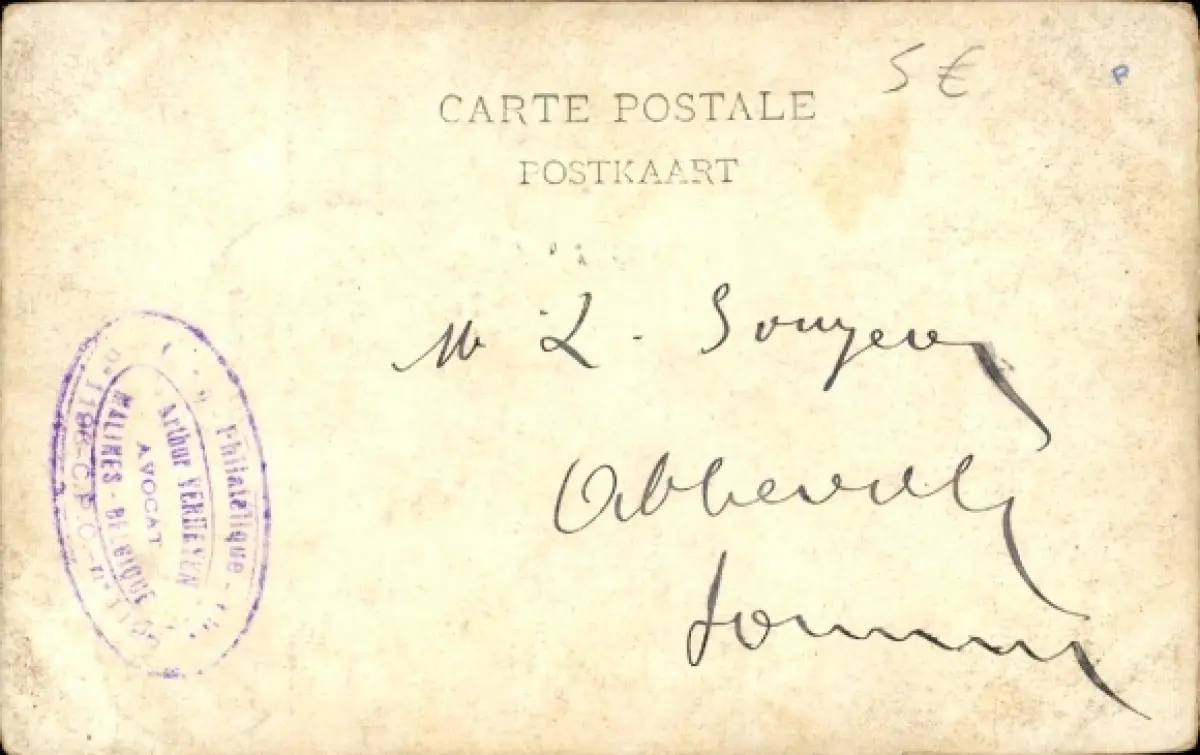 5 €
P
CARTE POSTALE
POSTKAART
Mr L. 
Abbeville
Somme
Philatélique
Arthur VERHEYEN
AVOCAT
MALINES - BELGIQUE